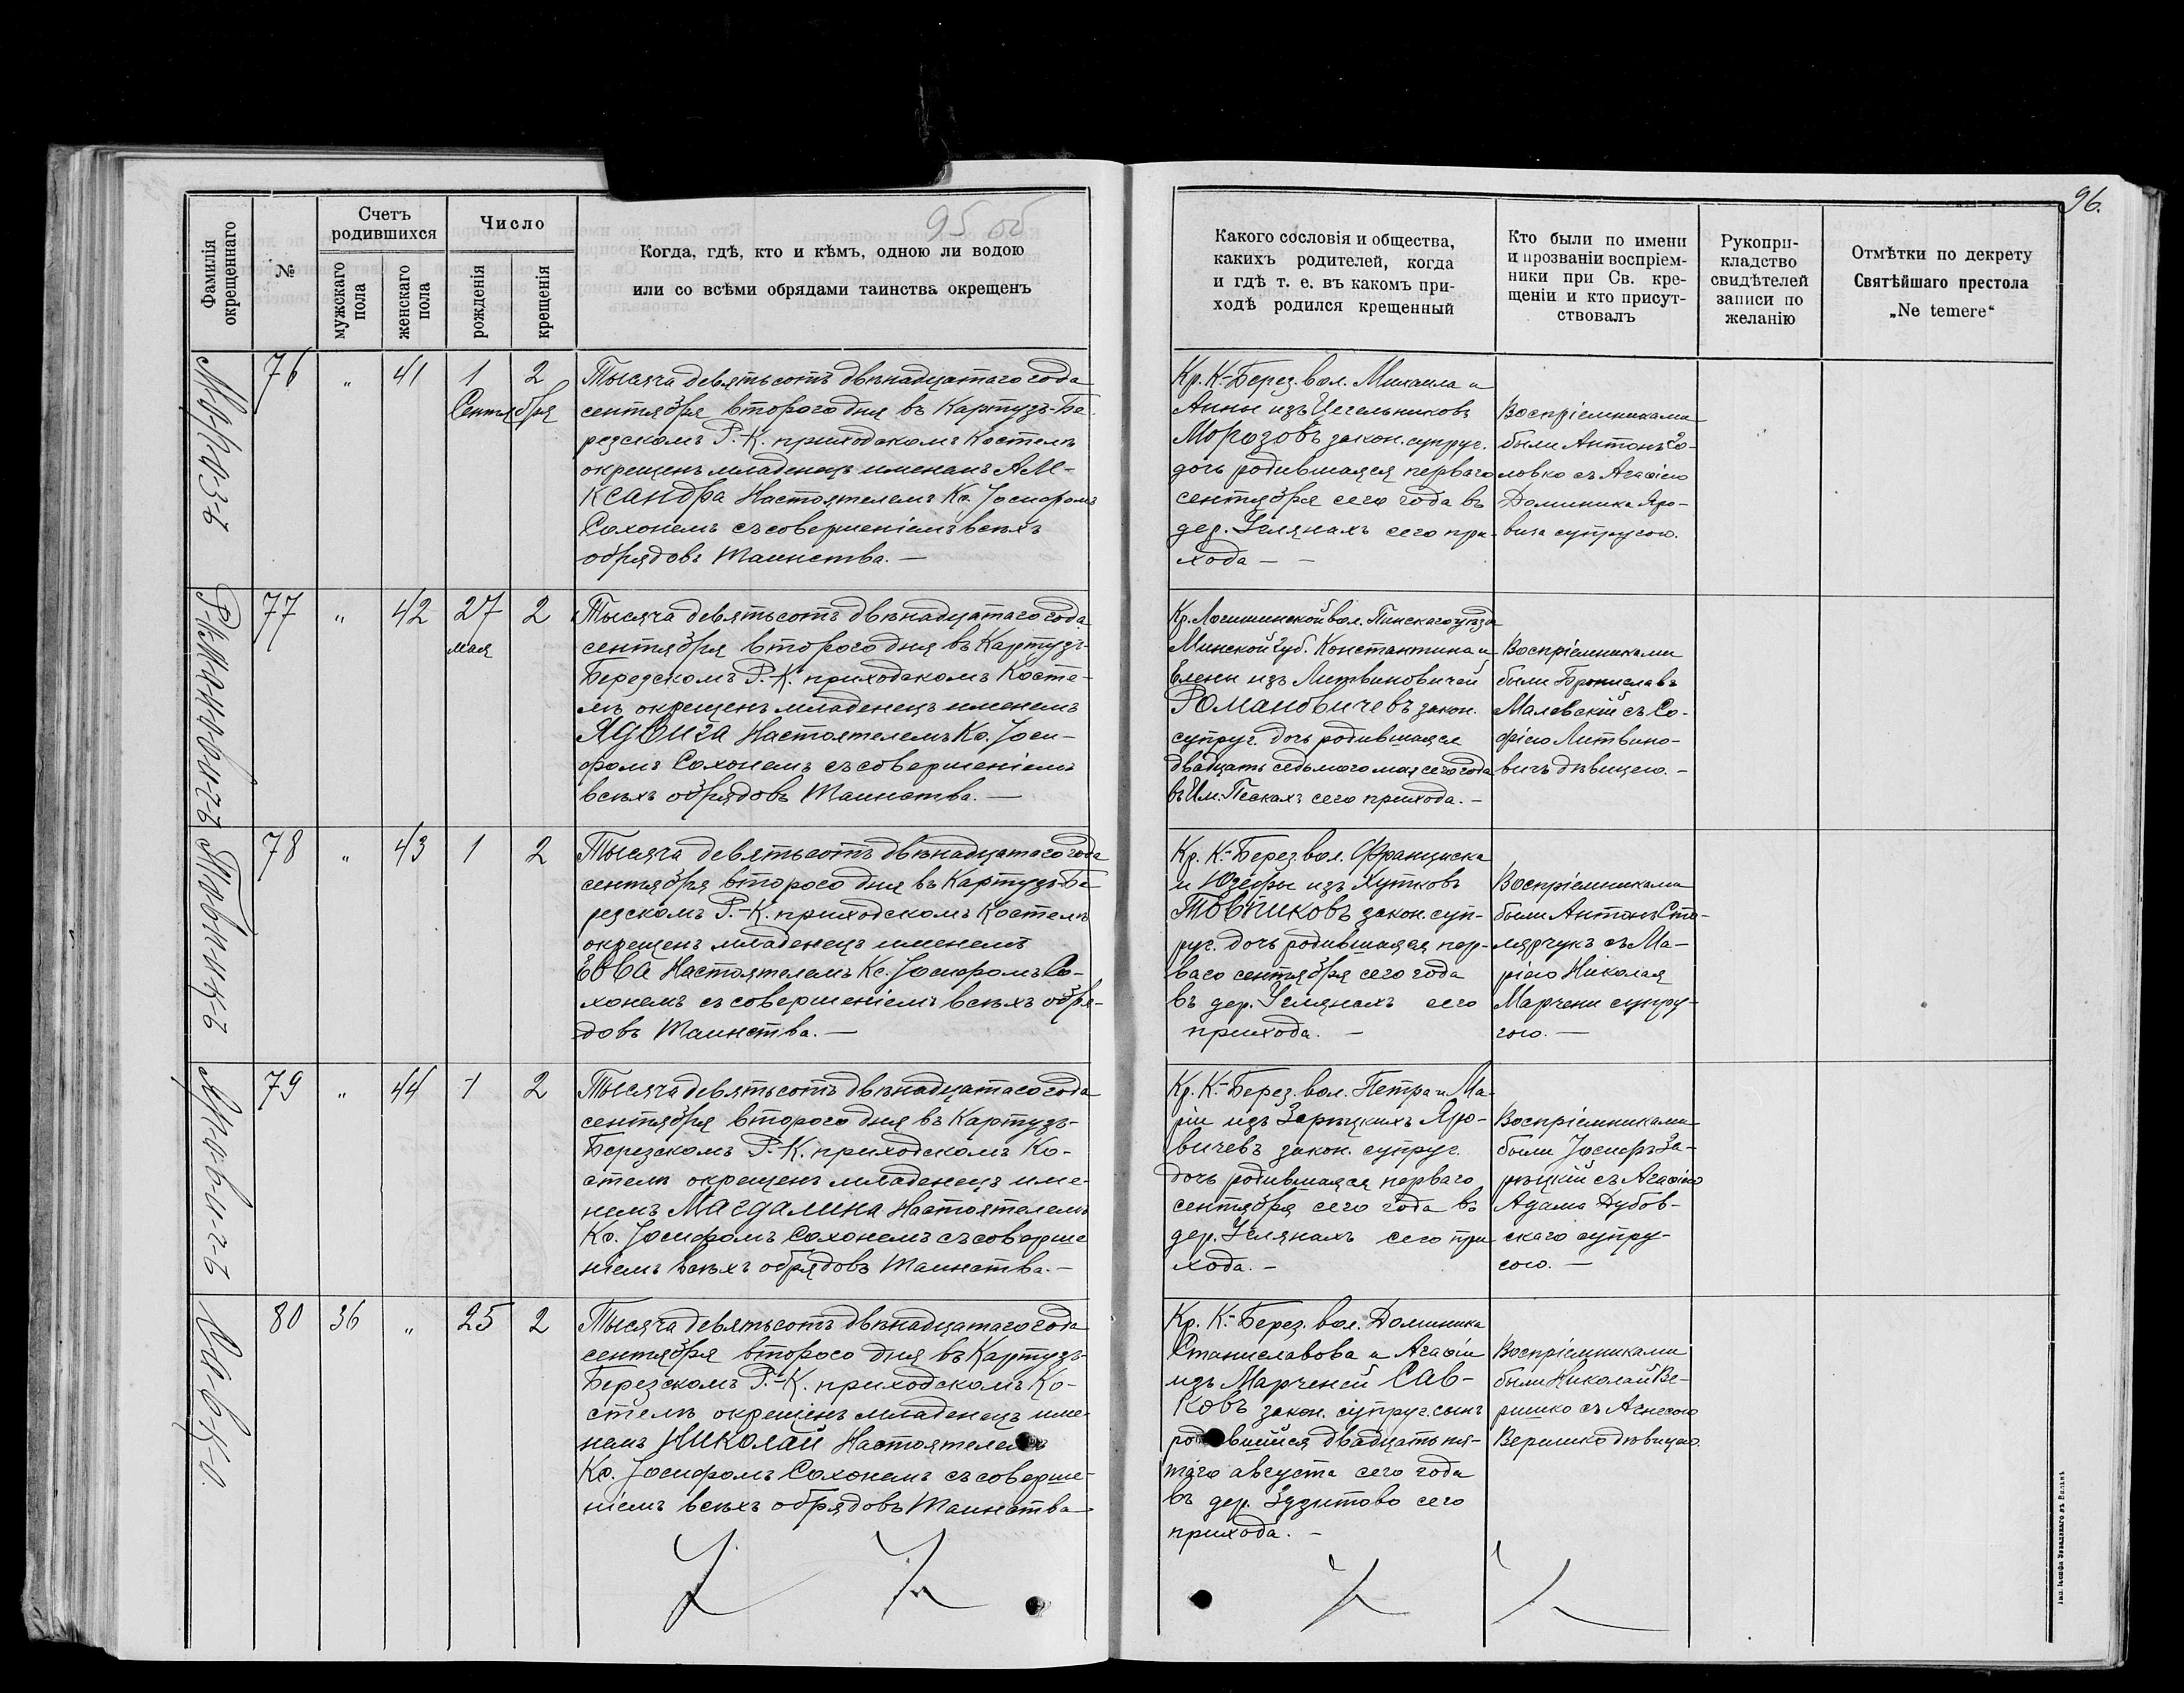 95 об
96.
Фамилія окрещеннаго
№
Счетъ родившихся
мужскаго пола
женскаго пола
Число
рожденія
крещенія
Когда, гдѣ, кто и кѣмъ, одною ли водою
или со всѣми обрядами таинства окрещенъ
Какого сословія и общества,
какихъ родителей, когда
и гдѣ т. е. въ какомъ при-
ходѣ родился крещенный
Кто были по имени
и прозваніи воспріем-
ники при Св. кре-
щеніи и кто присут-
ствовалъ
Рукопри-
кладство
свидѣтелей
записи по
желанію
Отмѣтки по декрету
Святѣйшаго престола
„Ne temere“
Морозъ
76 " 41 1 2
Сентября
Тысяча девятьсотъ двѣнадцатаго года
сентября второго дня въ Картузъ-Бе-
резскомъ Р.-К. приходскомъ Костелѣ
окрещенъ младенецъ именемъ Але-
ксандра Настоятелемъ Кс. Іосифомъ
Сохонемъ съ совершеніемъ всѣхъ
обрядовъ Таинства. —
Кр. К.-Берез. вол. Михаила и
Анны изъ Цегельниковъ
Морозовъ закон. супруг.
дочь родившаяся перваго
сентября сего года въ
дер. Углянахъ сего при-
хода — —
Воспріемниками
были Антонъ Со-
ловко съ Агафіею
Доминика Яро-
вича супругою.
Романовичъ
77 " 42 27 2
мая
Тысяча девятьсотъ двѣнадцатаго года
сентября второго дня въ Картузъ-
Березскомъ Р.-К. приходскомъ Косте-
лѣ окрещенъ младенецъ именемъ
Ядвига Настоятелемъ Кс. Іоси-
фомъ Сохонемъ съ совершеніемъ
всѣхъ обрядовъ Таинства. —
Кр. Логишинской вол. Пинскаго уѣзда
Минской губ. Константина и
Елены изъ Литвиновичей
Романовичевъ закон.
супруг. дочь родившаяся
двадцать седьмого мая сего года
въ Им. Пескахъ сего прихода. —
Воспріемниками
были Брониславъ
Малевскій съ Со-
фіею Литвино-
вичъ дѣвицею. —
Товпикъ
78 " 43 1 2
Тысяча девятьсотъ двѣнадцатаго года
сентября второго дня въ Картузъ-Бе-
резскомъ Р.-К. приходскомъ Костелѣ
окрещенъ младенецъ именемъ
Евва Настоятелемъ Кс. Іосифомъ Со-
хонемъ съ совершеніемъ всѣхъ обря-
довъ Таинства. —
Кр. К.-Берез. вол. Франциска
и Юзефы изъ Хутковъ
Товпиковъ закон. суп-
руг. дочь родившаяся пер-
ваго сентября сего года
въ дер. Углянахъ сего
прихода. —
Воспріемниками
были Антонъ Сто-
лярчукъ съ Ма-
ріею Николая
Марчени супру-
гою. —
Яровичъ
79 " 44 1 2
Тысяча девятьсотъ двѣнадцатаго года
сентября второго дня въ Картузъ-
Березскомъ Р.-К. приходскомъ Ко-
стелѣ окрещенъ младенецъ име-
немъ Магдалина Настоятелемъ
Кс. Іосифомъ Сохонемъ съ соверше
ніемъ всѣхъ обрядовъ Таинства. —
Кр. К.-Берез. вол. Петра и Ма-
ріи изъ Зарѣцкихъ Яро-
вичевъ закон. супруг.
дочь родившаяся перваго
сентября сего года въ
дер. Углянахъ сего при-
хода. —
Воспріемниками
были Іосифъ За-
рѣцкій съ Агафіею
Адама Дубов-
скаго супру-
гою. —
Савко
80 36 " 25 2
Тысяча девятьсотъ двѣнадцатаго года
сентября второго дня въ Картузъ-
Березскомъ Р.-К. приходскомъ Ко-
стелѣ окрещенъ младенецъ име-
немъ Николай Настоятелемъ
Кс. Іосифомъ Сохонемъ съ соверше-
ніемъ всѣхъ обрядовъ Таинства
Кр. К.-Берез. вол. Доминика
Станиславова и Агафіи
изъ Марченей Сав-
ковъ закон. супруг. сынъ
родившійся двадцать пя-
таго августа сего года
въ дер. Здзитово сего
прихода. —
Воспріемниками
были Николай Ве-
ришко съ Агнесою
Веришко дѣвицею.